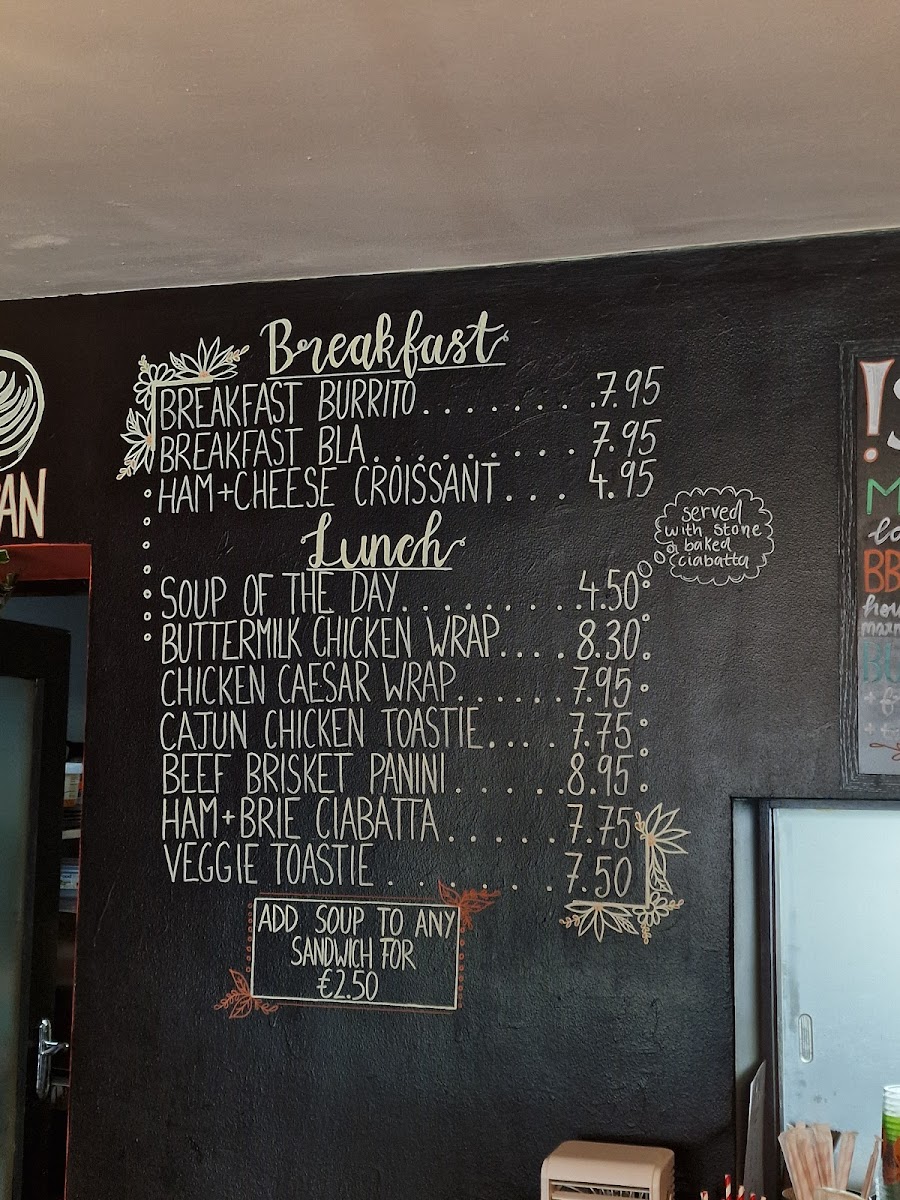 Breakfast
BREAKFAST BURRITO........7.95
BREAKFAST BLA..........7.95
HAM+CHEESE CROISSANT....4.95
Lunch
served
with stone
baked
ciabatta
SOUP OF THE DAY..........4.50
BUTTERMILK CHICKEN WRAP....8.30
CHICKEN CAESAR WRAP......7.95
CAJUN CHICKEN TOASTIE....7.75
BEEF BRISKET PANINI......8.95
HAM+BRIE CIABATTA......7.75
VEGGIE TOASTIE........7.50
ADD SOUP TO ANY
SANDWICH FOR
€2.50